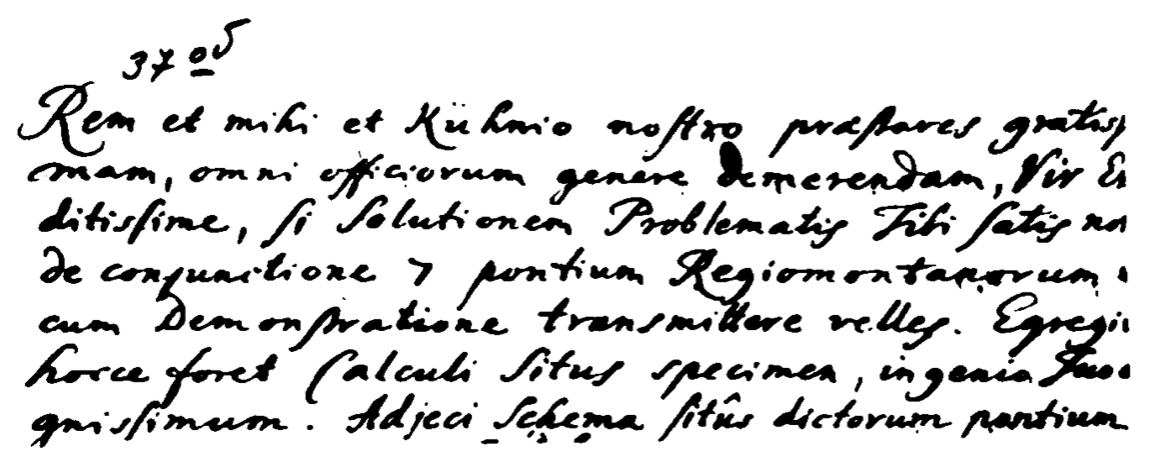 37
Rem et mihi et Kühnio nostro præstares gratis
mam, omni officiorum genere demerendam, Vir Er
ditissime, si Solutionem Problematis Tibi satis no
de conjunctione 7 pontium Regiomontanorum
cum Demonstratione transmittere velles. Egregiu
hocce foret Calculi Situs specimen, ingenio Tuo
gnissimum. Adjeci Schema sitûs dictorum pontium